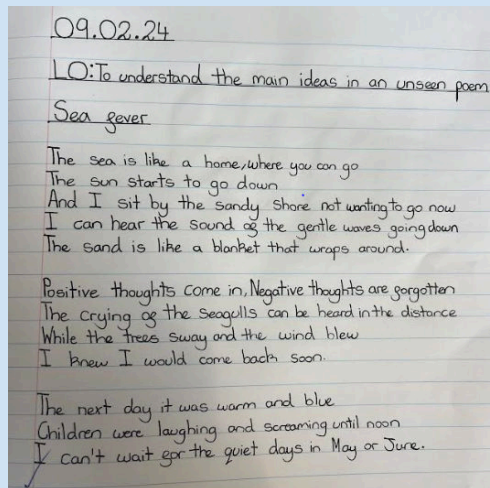 09.02.24
LO: To understand the main ideas in an unseen poem
Sea fever
The sea is like a home, where you can go
The sun starts to go down
And I sit by the sandy shore not wanting to go now
I can hear the sound of the gentle waves going down
The sand is like a blanket that wraps around.
Positive thoughts come in, Negative thoughts are forgotten
The crying of the seagulls can be heard in the distance
While the trees sway and the wind blew
I knew I would come back soon.
The next day it was warm and blue
Children were laughing and screaming until noon
I can't wait for the quiet days in May or June.